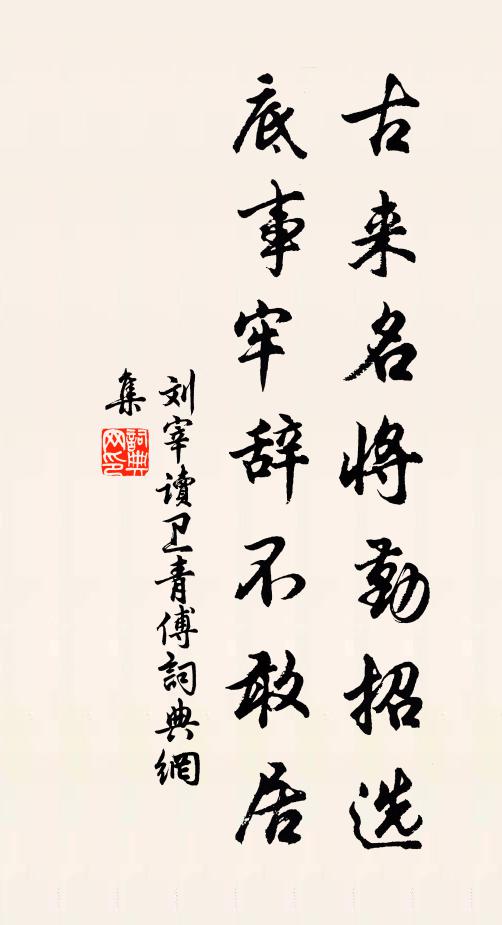 古来名将勤招选
底事牢辞不敢居
刘宰读卫青傅詞典網
集
詞典
网印